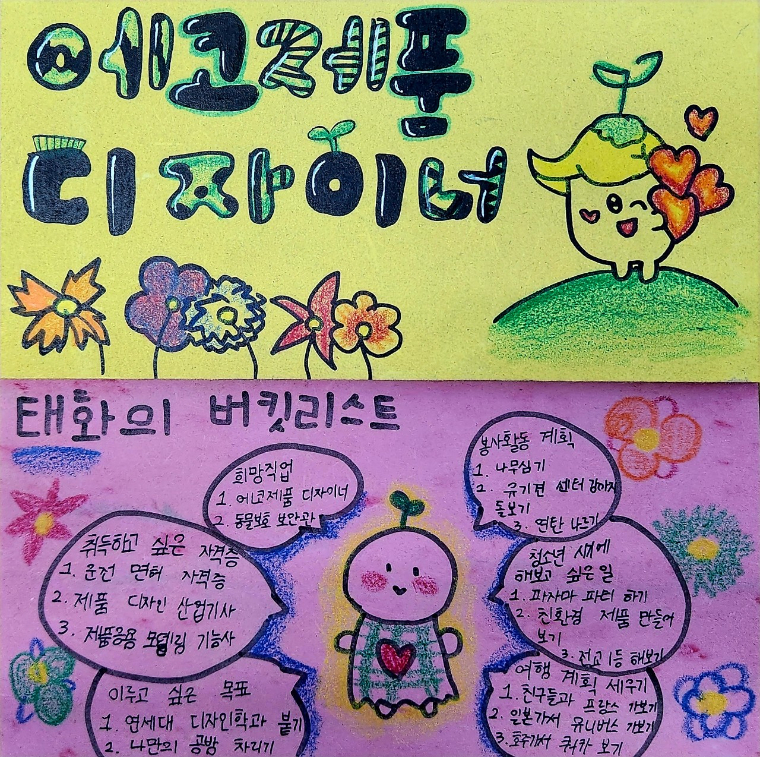 에코제품
디자이너
태화의 버킷리스트
희망직업
1. 에코제품 디자이너
2. 동물보호 보안관
취득하고 싶은 자격증
1. 운전 면허 자격증
2. 제품 디자인 산업기사
3. 제품응용 모델링 기능사
이루고 싶은 목표
1. 연세대 디자인학과 붙기
2. 나만의 공방 차리기
봉사활동 계획
1. 나무심기
2. 유기견 센터 강아지
돌보기
3. 연탄 나르기
청소년 시기에
해보고 싶은 일
1. 파자마 파티 하기
2. 친환경 제품 만들어
보기
3. 전교 1등 해보기
여행 계획 세우기
1. 친구들과 프랑스 가보기
2. 일본가서 유니버스 가보기
3. 호주가서 쿼카 보기